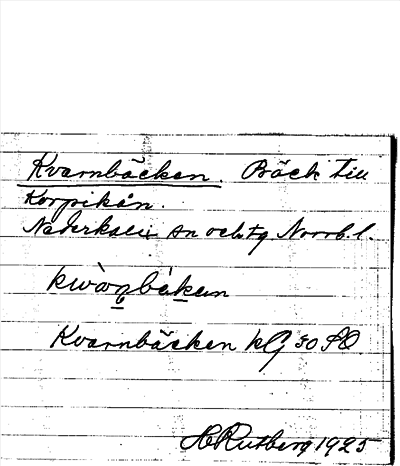 Kvarnbäcken. Bäck till
Korpikån.
Nederkalix sn och tg Norrb. l.
kwàrnbèkən
Kvarnbäcken kG 30 SO
H Rutberg 1925